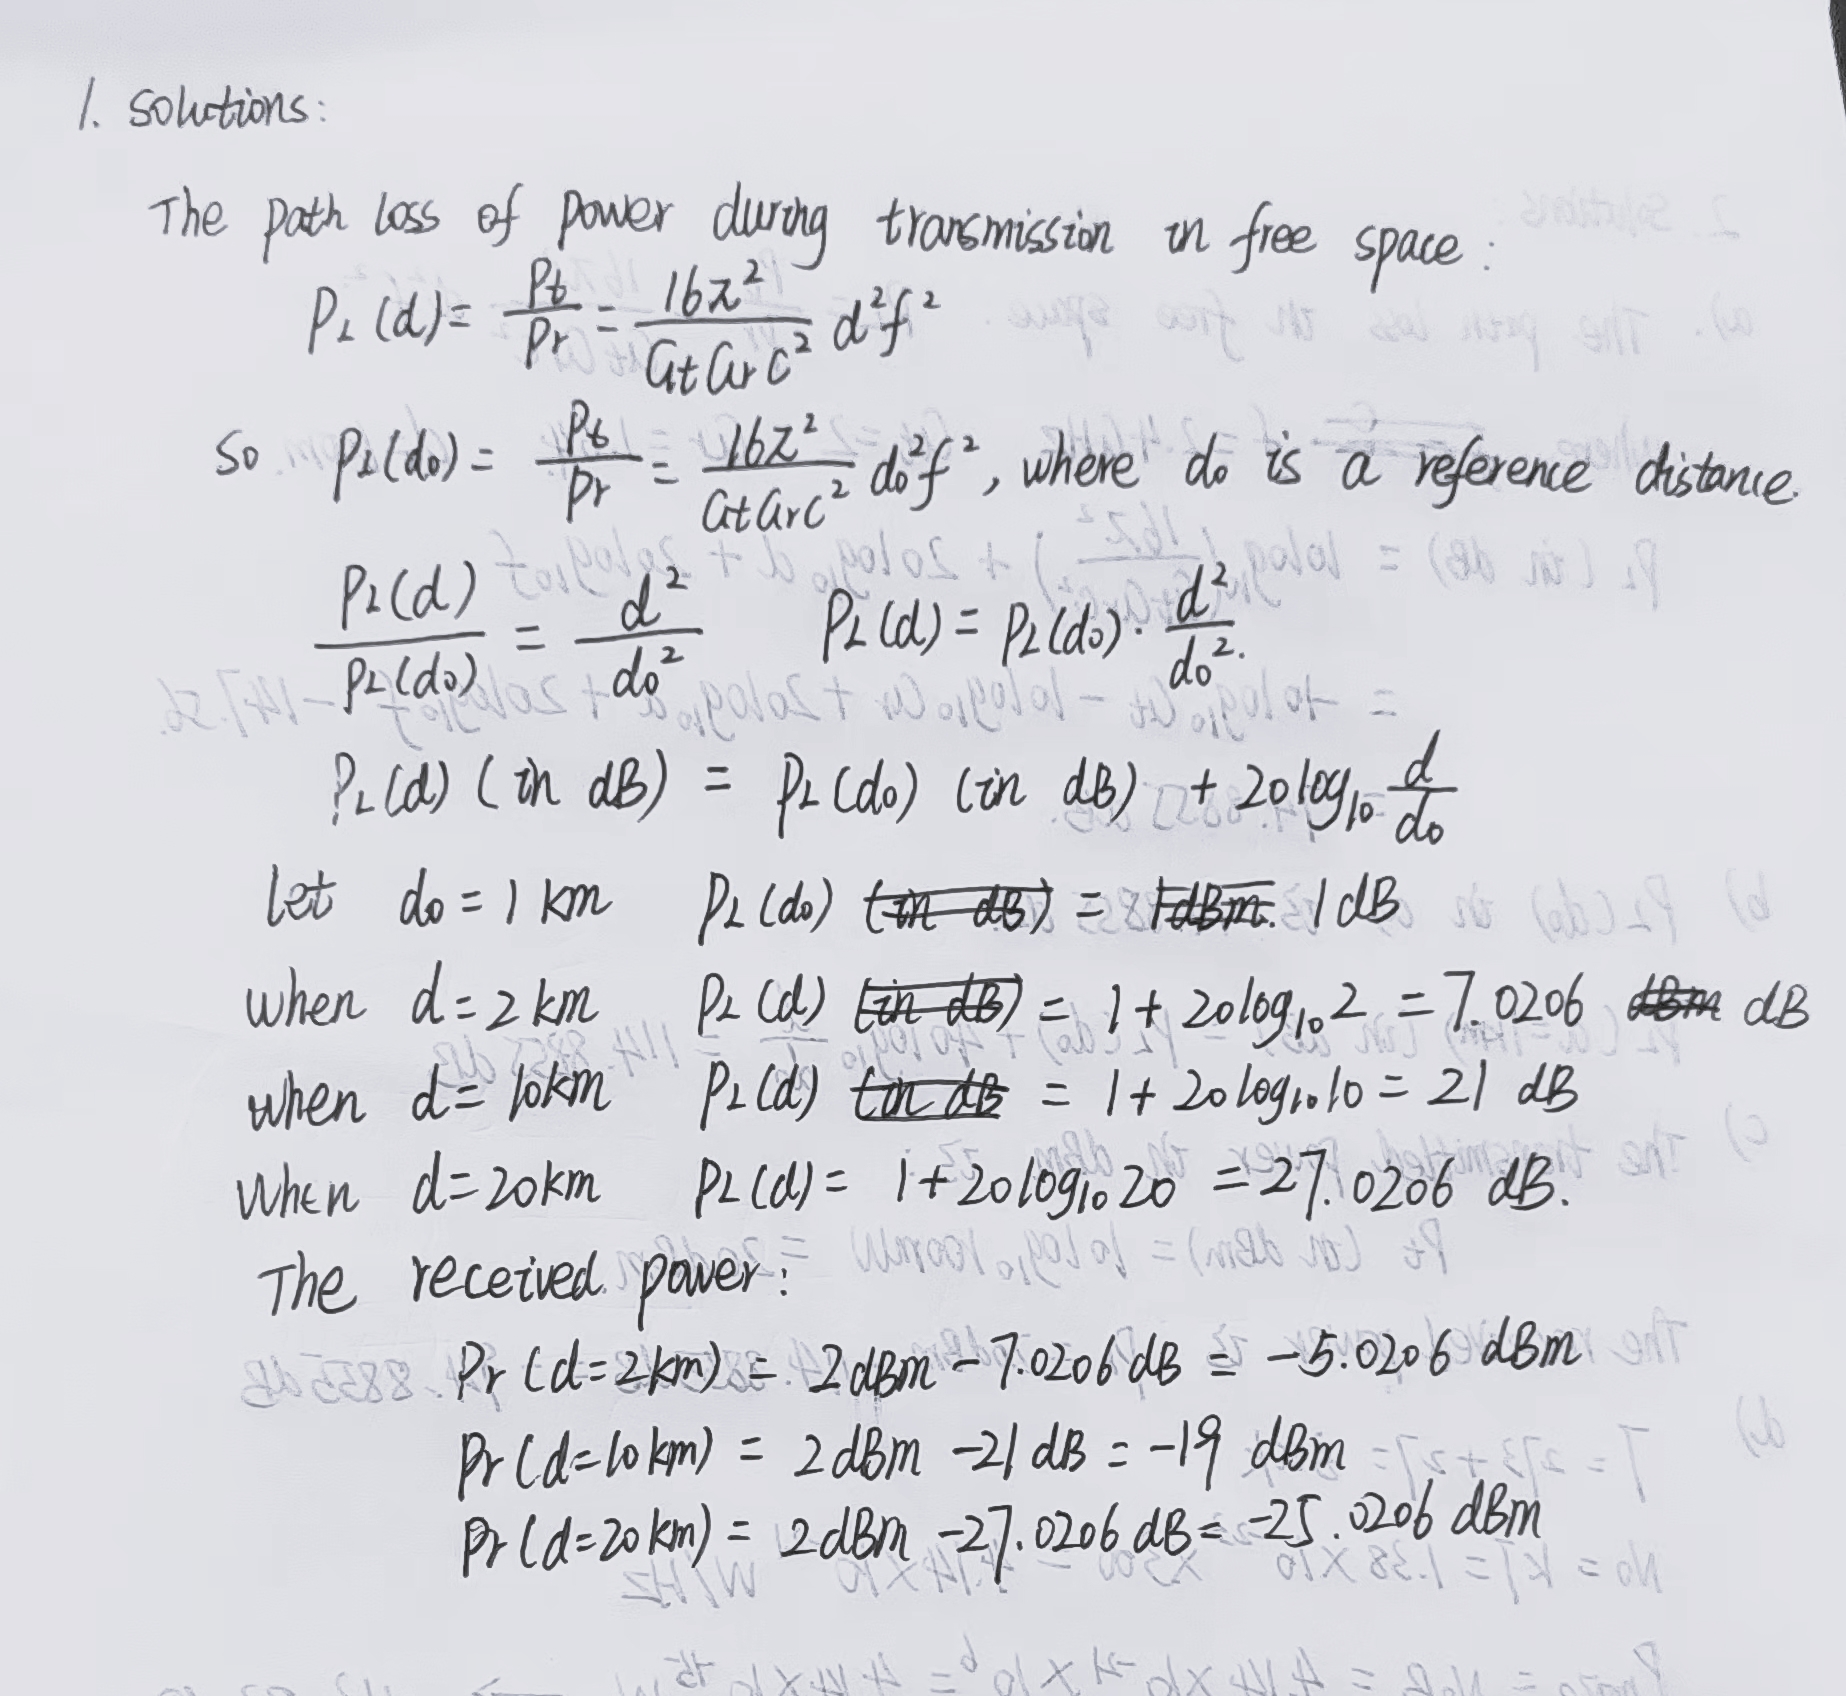 1. Solutions:
The path loss of power during transmission in free space:
PL(d) = Pt/Pr = 16π²/(Gt Gr c²) d²f²
So PL(d0) = Pt/Pr = 16π²/(Gt Gr c²) d0²f², where d0 is a reference distance.
PL(d)/PL(d0) = d²/d0² PL(d) = PL(d0) · d²/d0².
PL(d) (in dB) = PL(d0) (in dB) + 20log10 d/d0
let d0 = 1 km PL(d0) (in dB) = 1dBm. 1dB
when d = 2 km PL(d) (in dB) = 1 + 20log10 2 = 7.0206 dBm dB
when d = 10km PL(d) (in dB = 1 + 20log10 10 = 21 dB
When d = 20km PL(d) = 1 + 20log10 20 = 27.0206 dB.
The received power:
Pr (d=2km) = 2dBm - 7.0206 dB = -5.0206 dBm
Pr (d=10km) = 2dBm - 21 dB = -19 dBm
Pr (d=20km) = 2dBm - 27.0206 dB = -25.0206 dBm